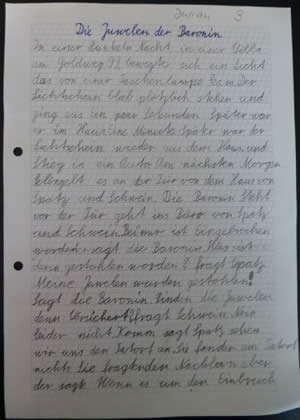 Julian 3
Die Juwelen der Baronin
In einer dunkeln Nacht in einer Villa
am Goldweg 11 bewegte sich ein Licht
das von einer Taschenlampe kam. Der
Lichtschein blieb plötzlich stehen und
ging aus ein paar Sekunden Später war
er im Haus. Eine Minute Später war der
Lichtschein wieder aus dem Haus, und
Stieg in ein Auto. Am nächsten Morgen
klingelt es an der Tür von dem Haus von
Spatz und Schwein. Die Baronin Steht
vor der Tür geht ins Büro von Spatz
und Schwein. Bei mir ist eingebrochen
worden sagt die Baronin. Was ist
denn gestohlen worden? fragt Spatz
Meine Juwelen wurden gestohlen!
Sagt die Baronin. Sinden die Juwelen
denn Versichert? fragt Schwein. Nein
leider nicht. Komm sagt Spatz sehen
wir uns den Tatort an. Sie fanden am Tatort
nichts. Sie fragten den Nachbarn aber
der sagte. Wenn es um den Einbruch